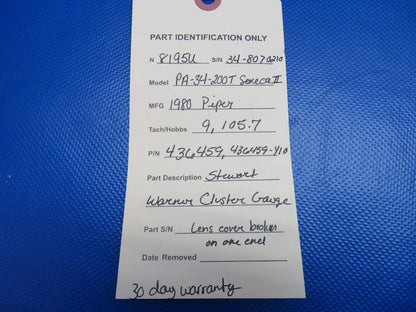 PART IDENTIFICATION ONLY
N 8195U S/N 34-8070210
Model PA-34-200T Seneca II
MFG 1980 Piper
Tach/Hobbs 9,105.7
P/N 436459, 436459-410
Part Description Stewart
Warner Cluster Gauge
Part S/N Lens cover broken
on one end
Date Removed
30 day warranty